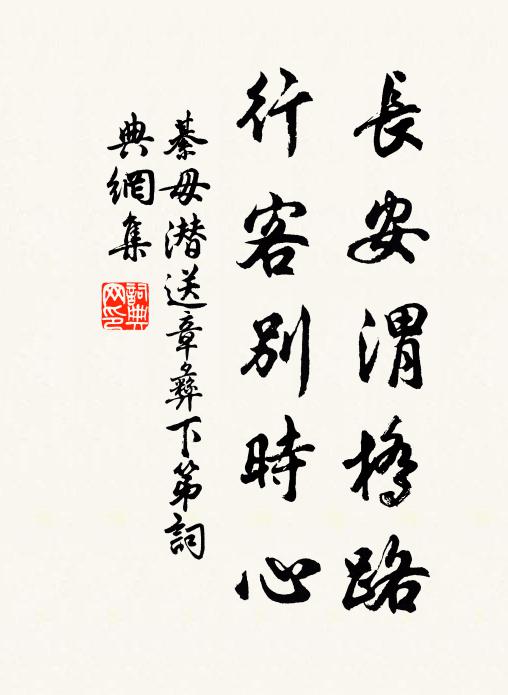 長安渭橋路
行客別時心
綦毋潜送章彝下第詞
典網集
詞典
网印